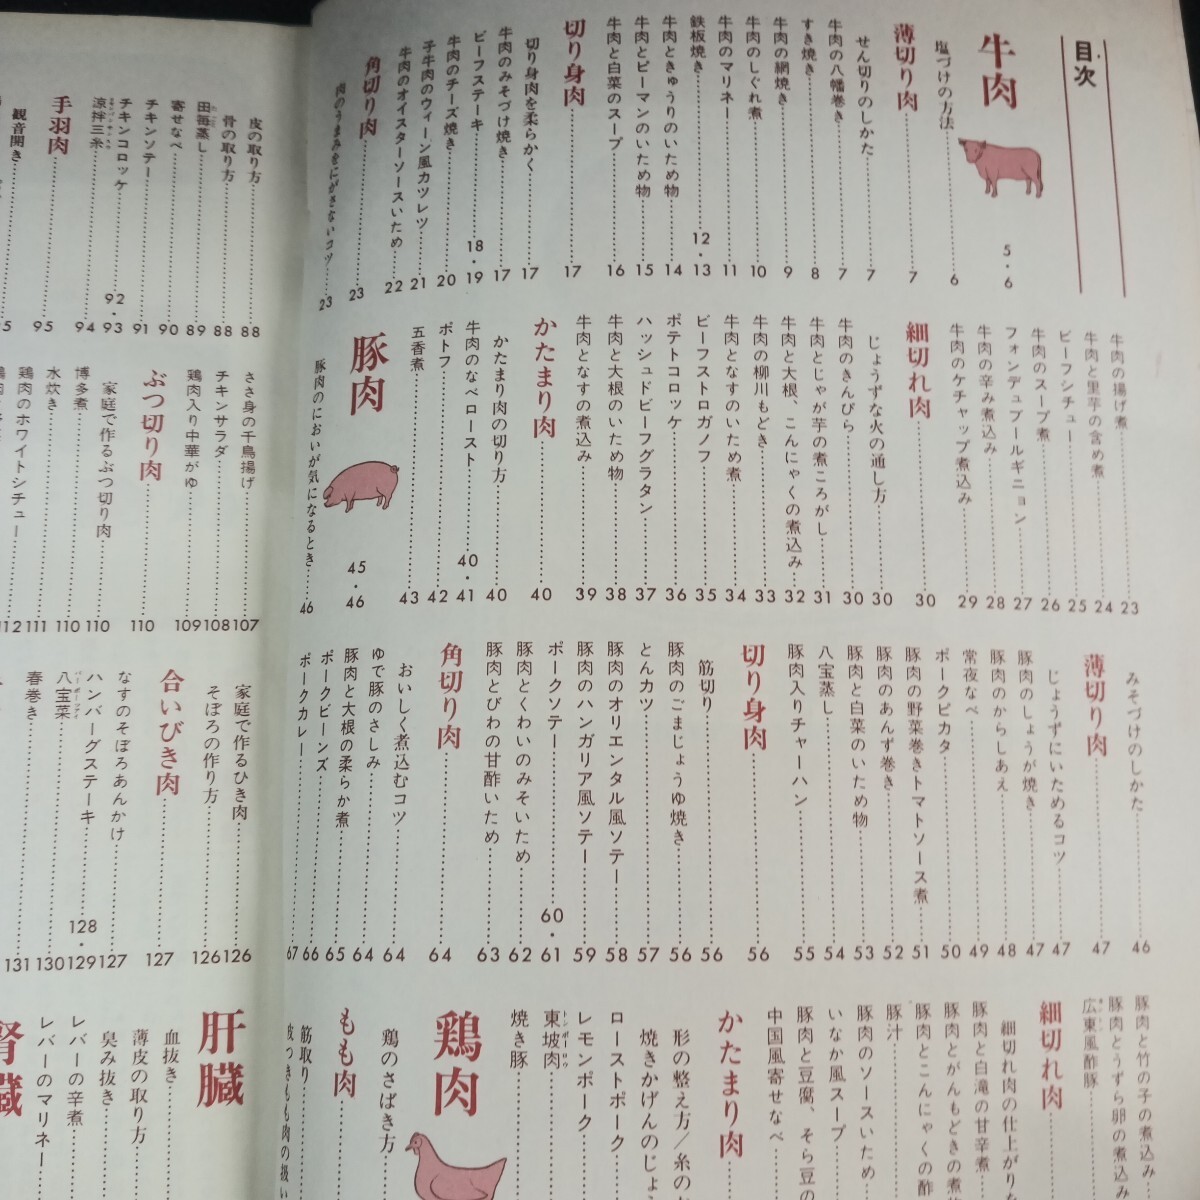 目次
牛肉……5・6
塩づけの方法……6
薄切り肉……7
せん切りのしかた……7
牛肉の八幡巻き……7
すき焼き……8
牛肉の網焼き……9
牛肉のしぐれ煮……10
牛肉のマリネー……11
鉄板焼き……12・13
牛肉ときゅうりのいため物……14
牛肉とピーマンのいため物……15
牛肉と白菜のスープ……16
切り身肉……17
切り身肉を柔らかく……17
牛肉のみそづけ焼き……17
ビーフステーキ……18・19
牛肉のチーズ焼き……20
子牛肉のウィーン風カツレツ……21
牛肉のオイスターソースいため……22
角切り肉……23
肉のうまみをにがさないコツ……23
牛肉の揚げ煮……23
牛肉と里芋の含め煮……24
ビーフシチュー……25
牛肉のスープ煮……26
フォンデュブールギニョン……27
牛肉の辛み煮込み……28
牛肉のケチャップ煮込み……29
細切れ肉……30
じょうずな火の通し方……30
牛肉のきんぴら……30
牛肉とじゃが芋の煮ころがし……31
牛肉と大根、こんにゃくの煮込み……32
牛肉の柳川もどき……33
牛肉となすのいため煮……34
ビーフストロガノフ……35
ポテトコロッケ……36
ハッシュドビーフグラタン……37
牛肉と大根のいため物……38
牛肉となすの煮込み……39
かたまり肉……40
かたまり肉の切り方……40
牛肉のなべロースト……40・41
ポトフ……42
五香煮……43
豚肉……45・46
豚肉のにおいが気になるとき……46
みそづけのしかた……46
薄切り肉……47
じょうずにいためるコツ……47
豚肉のしょうが焼き……47
豚肉のからしあえ……48
常夜なべ……49
ポークピカタ……50
豚肉の野菜巻きトマトソース煮……51
豚肉のあんず巻き……52
豚肉と白菜のいため物……53
八宝蒸し……54
豚肉入りチャーハン……55
切り身肉……56
筋切り……56
豚肉のごまじょうゆ焼き……56
とんカツ……57
豚肉のオリエンタル風ソテー……58
豚肉のハンガリア風ソテー……59
ポークソテー……60・61
豚肉とくわいのみそいため……62
豚肉とびわの甘酢いため……63
角切り肉……64
おいしく煮込むコツ……64
ゆで豚のさしみ……64
豚肉と大根の柔らか煮……65
ポークビーンズ……66
ポークカレー……67
豚肉と竹の子の煮込み
豚肉とうずら卵の煮込み
広東風酢豚
細切れ肉
細切れ肉の仕上がり
豚肉と白滝の甘辛煮
豚肉とがんもどきの煮
豚肉とこんにゃくの酢
豚汁
豚肉のソースいため
いなか風スープ
豚肉と豆腐、そら豆の
中国風寄せなべ
かたまり肉
形の整え方/糸の
焼きかげんのじょ
ローストポーク
レモンポーク
東坡肉
トンポーロウ
焼き豚
鶏肉
鶏のさばき方
もも肉
筋取り
皮つきもも肉の扱い
皮の取り方……88
骨の取り方……88
田毎蒸し……89
寄せなべ……90
チキンソテー……91
チキンコロッケ……92・93
涼拌三糸……94
手羽肉……95
観音開き
ささ身の千鳥揚げ……107
チキンサラダ……108
鶏肉入り中華がゆ……109
ぶつ切り肉……110
家庭で作るぶつ切り肉……110
博多煮……110
水炊き……111
鶏肉のホワイトシチュー……112
家庭で作るひき肉……126
そぼろの作り方……126
合いびき肉……127
なすのそぼろあんかけ……127
ハンバーグステーキ……128・129
八宝菜……130
パーポーツァイ
春巻き……131
肝臓
血抜き
薄皮の取り方
臭み抜き
レバーの辛煮
レバーのマリネー
腎臓